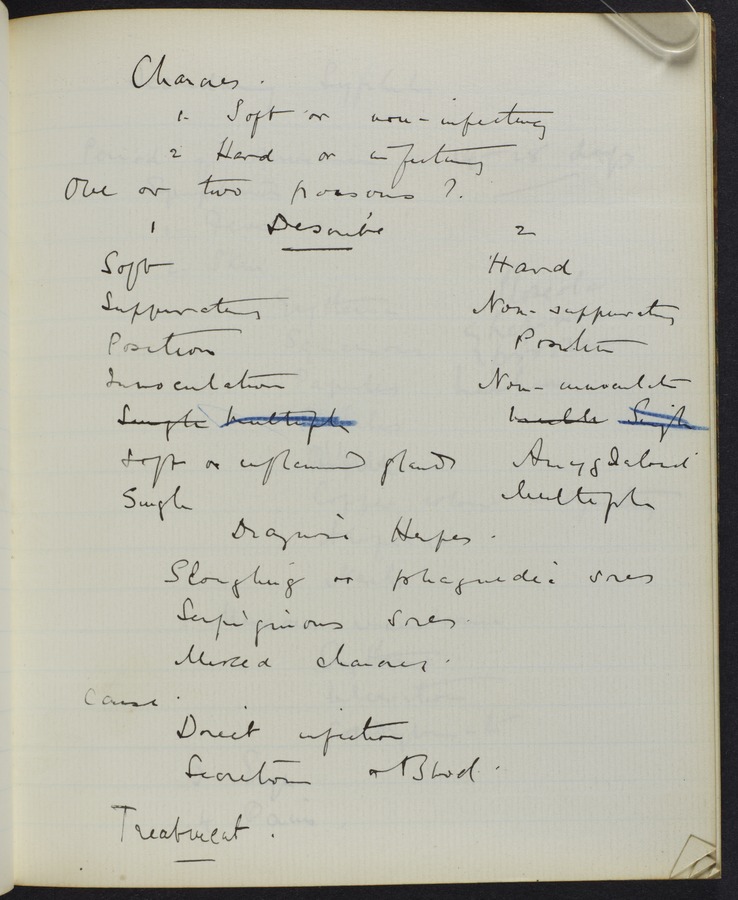 Chancres.
1. Soft or non-infecting
2 Hard or infecting
One or two poisons ?.
1 Describe 2
Soft Hard
Suppurating Non-suppurating
Position Position
Innoculation Non-innoculate
Single Multiple Single
Soft or inflamed glands Amygdaloid
Single Multiple
Diagnosis Herpes.
Sloughing or phagaedic sores
Serpiginous sores.
Mixed chancres.
Cause.
Direct infection
Secretion or Blood.
Treatment.